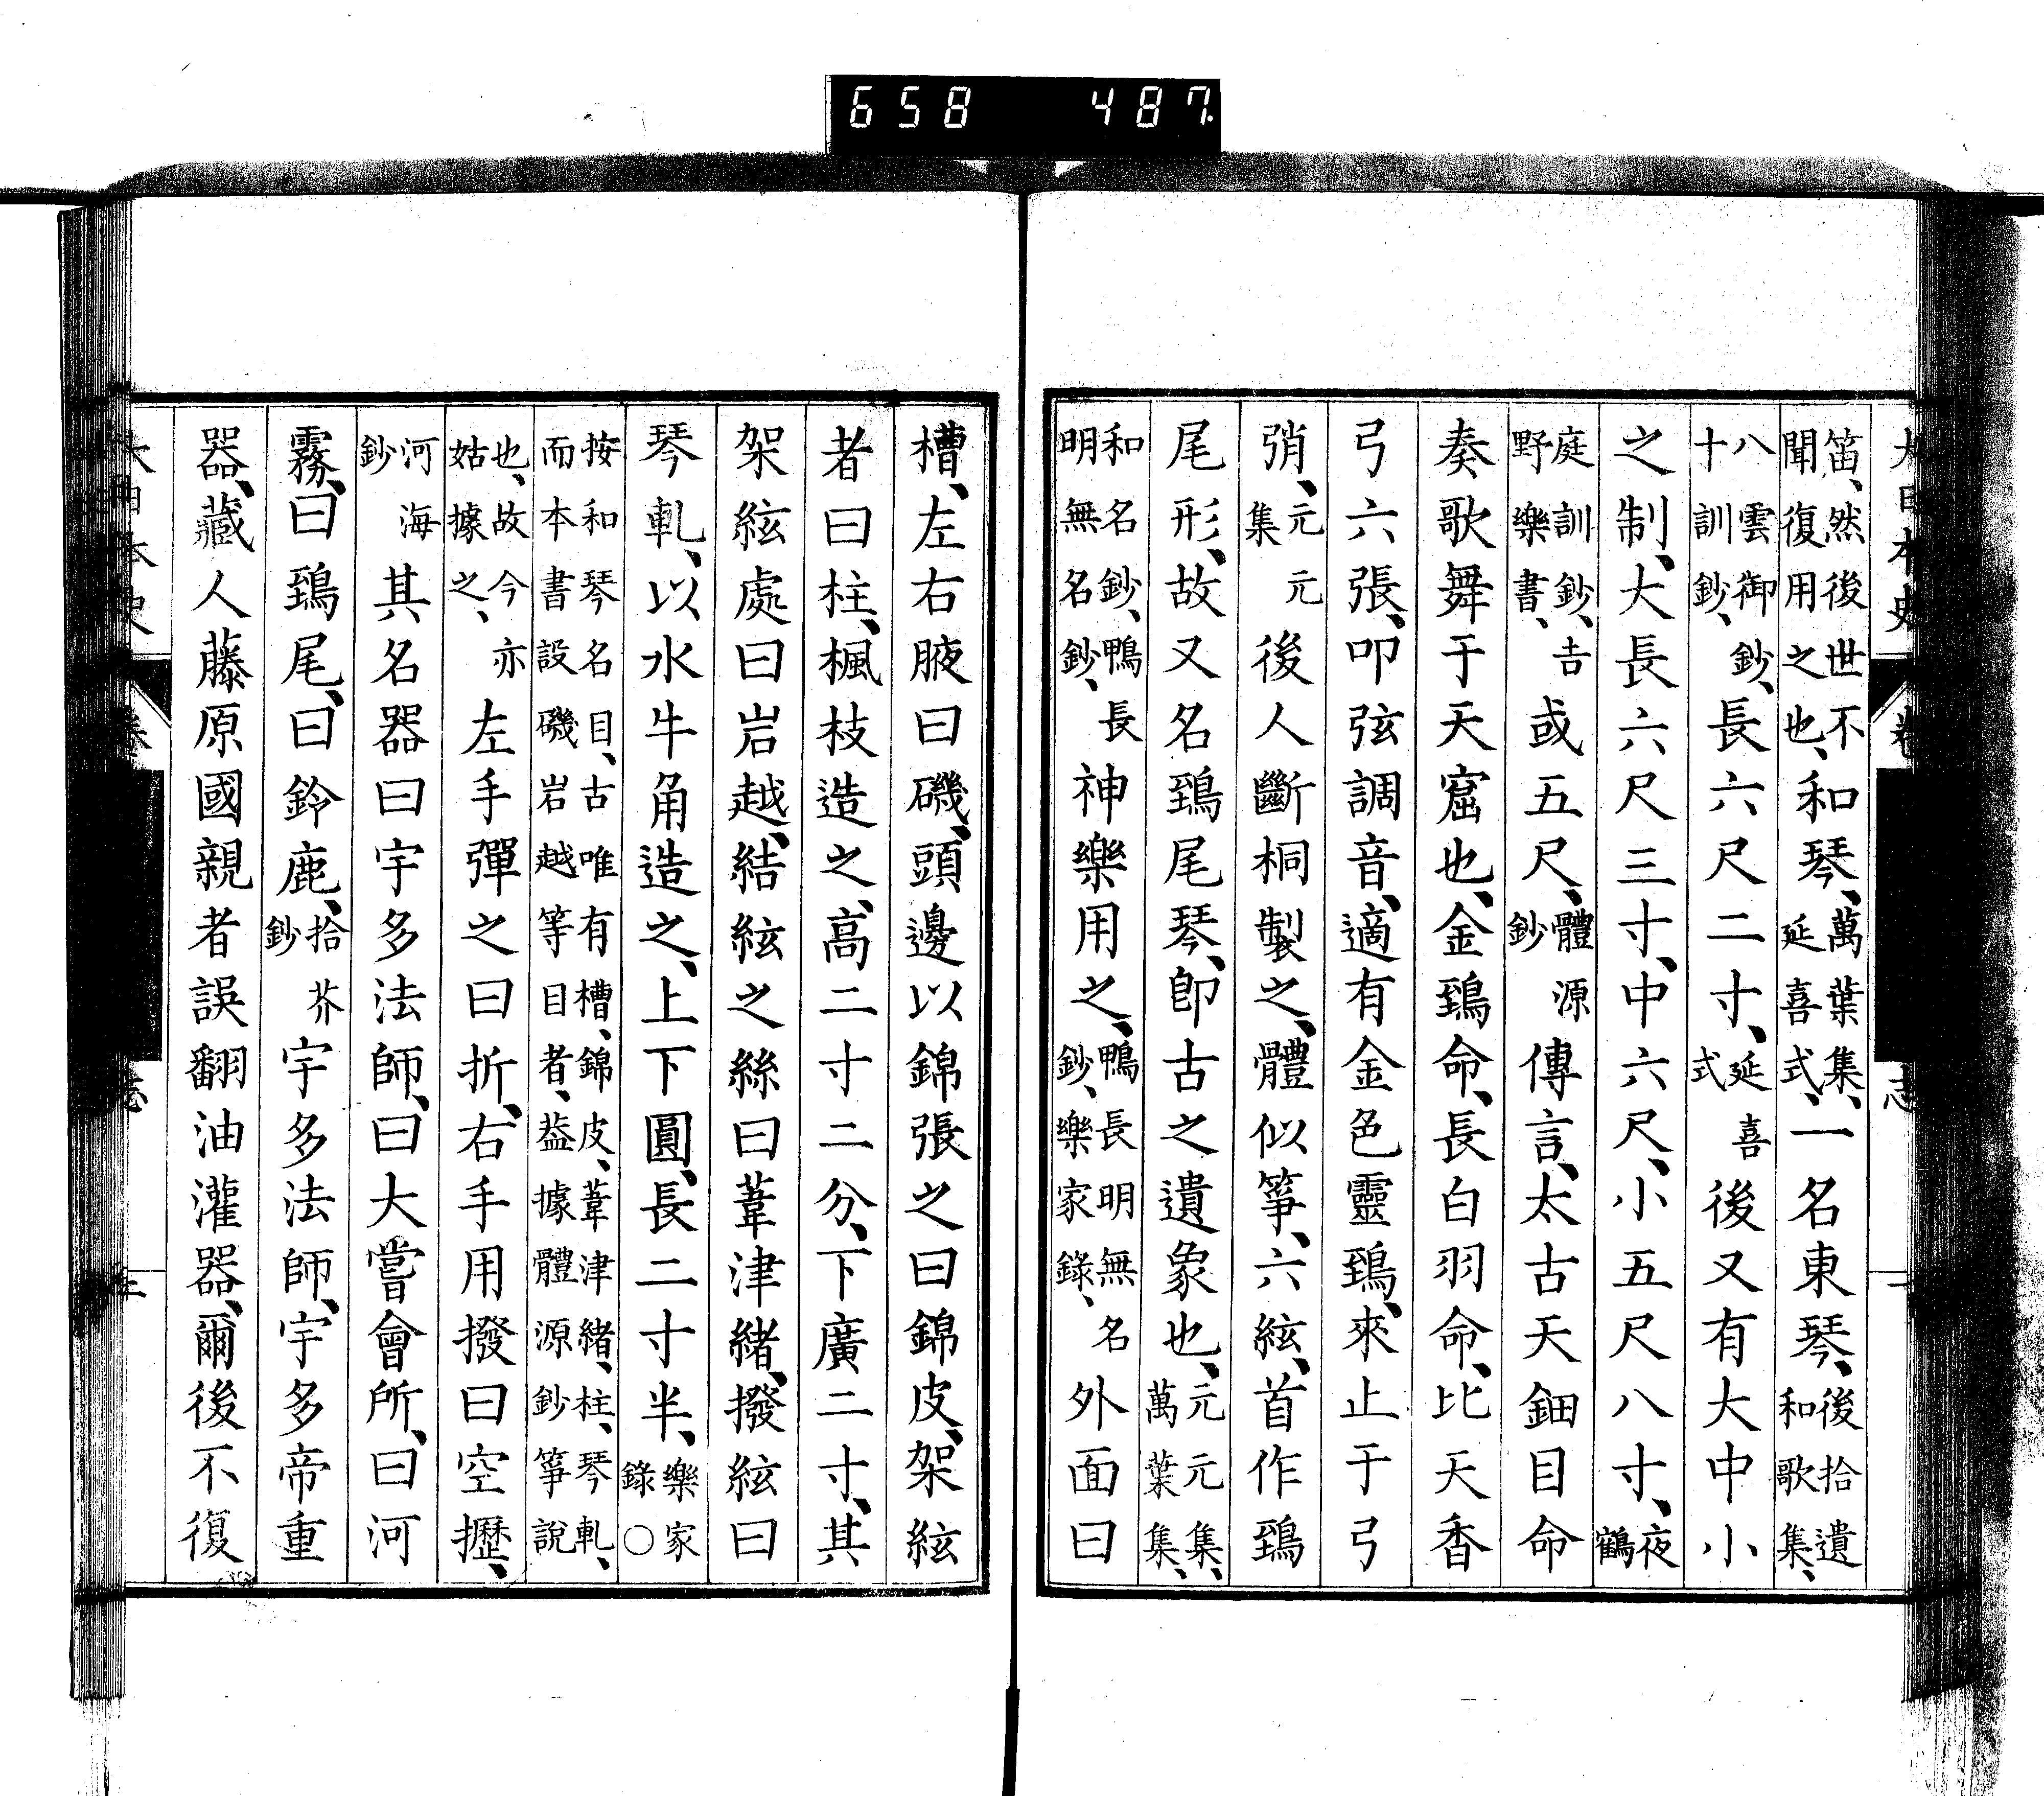 658 487
大日本史
志
笛、然後世不聞復用之也、和琴、萬葉集、延喜式、一名東琴、後拾遺和歌集、
八雲御鈔、十訓鈔、長六尺二寸、延喜式後又有大中小
之制、大長六尺三寸、中六尺、小五尺八寸、夜鶴
庭訓鈔、吉野樂書、或五尺、體源鈔傳言、太古天鈿目命
奏歌舞于天窟也、金鵄命、長白羽命、比天香
弓六張、叩弦調音、適有金色靈鵄、來止于弓
弰、元元集後人斷桐製之、體似箏、六絃、首作鵄
尾形、故又名鵄尾琴、卽古之遺象也、元元集、萬葉集、
和名鈔、鴨長明無名鈔、神樂用之、鴨長明無名鈔、樂家錄、外面曰
槽、左右腋曰磯、頭邊以錦張之曰錦皮、架絃
者曰柱、楓枝造之、高二寸二分、下廣二寸、其
架絃處曰岩越、結絃之絲曰葦津緒、撥絃曰
琴軋、以水牛角造之、上下圓、長二寸半、樂家錄〇
按和琴名目、古唯有槽、錦皮、葦津緒、柱、琴軋、而本書設磯岩越等目者、葢據體源鈔箏說
也、故今亦姑據之、左手彈之曰折、右手用撥曰空攊、
河海鈔其名器曰宇多法師、曰大嘗會所、曰河
霧、曰鵄尾、曰鈴鹿、拾芥鈔宇多法師、宇多帝重
器、藏人藤原國親者誤翻油灌器、爾後不復
大日本史
志